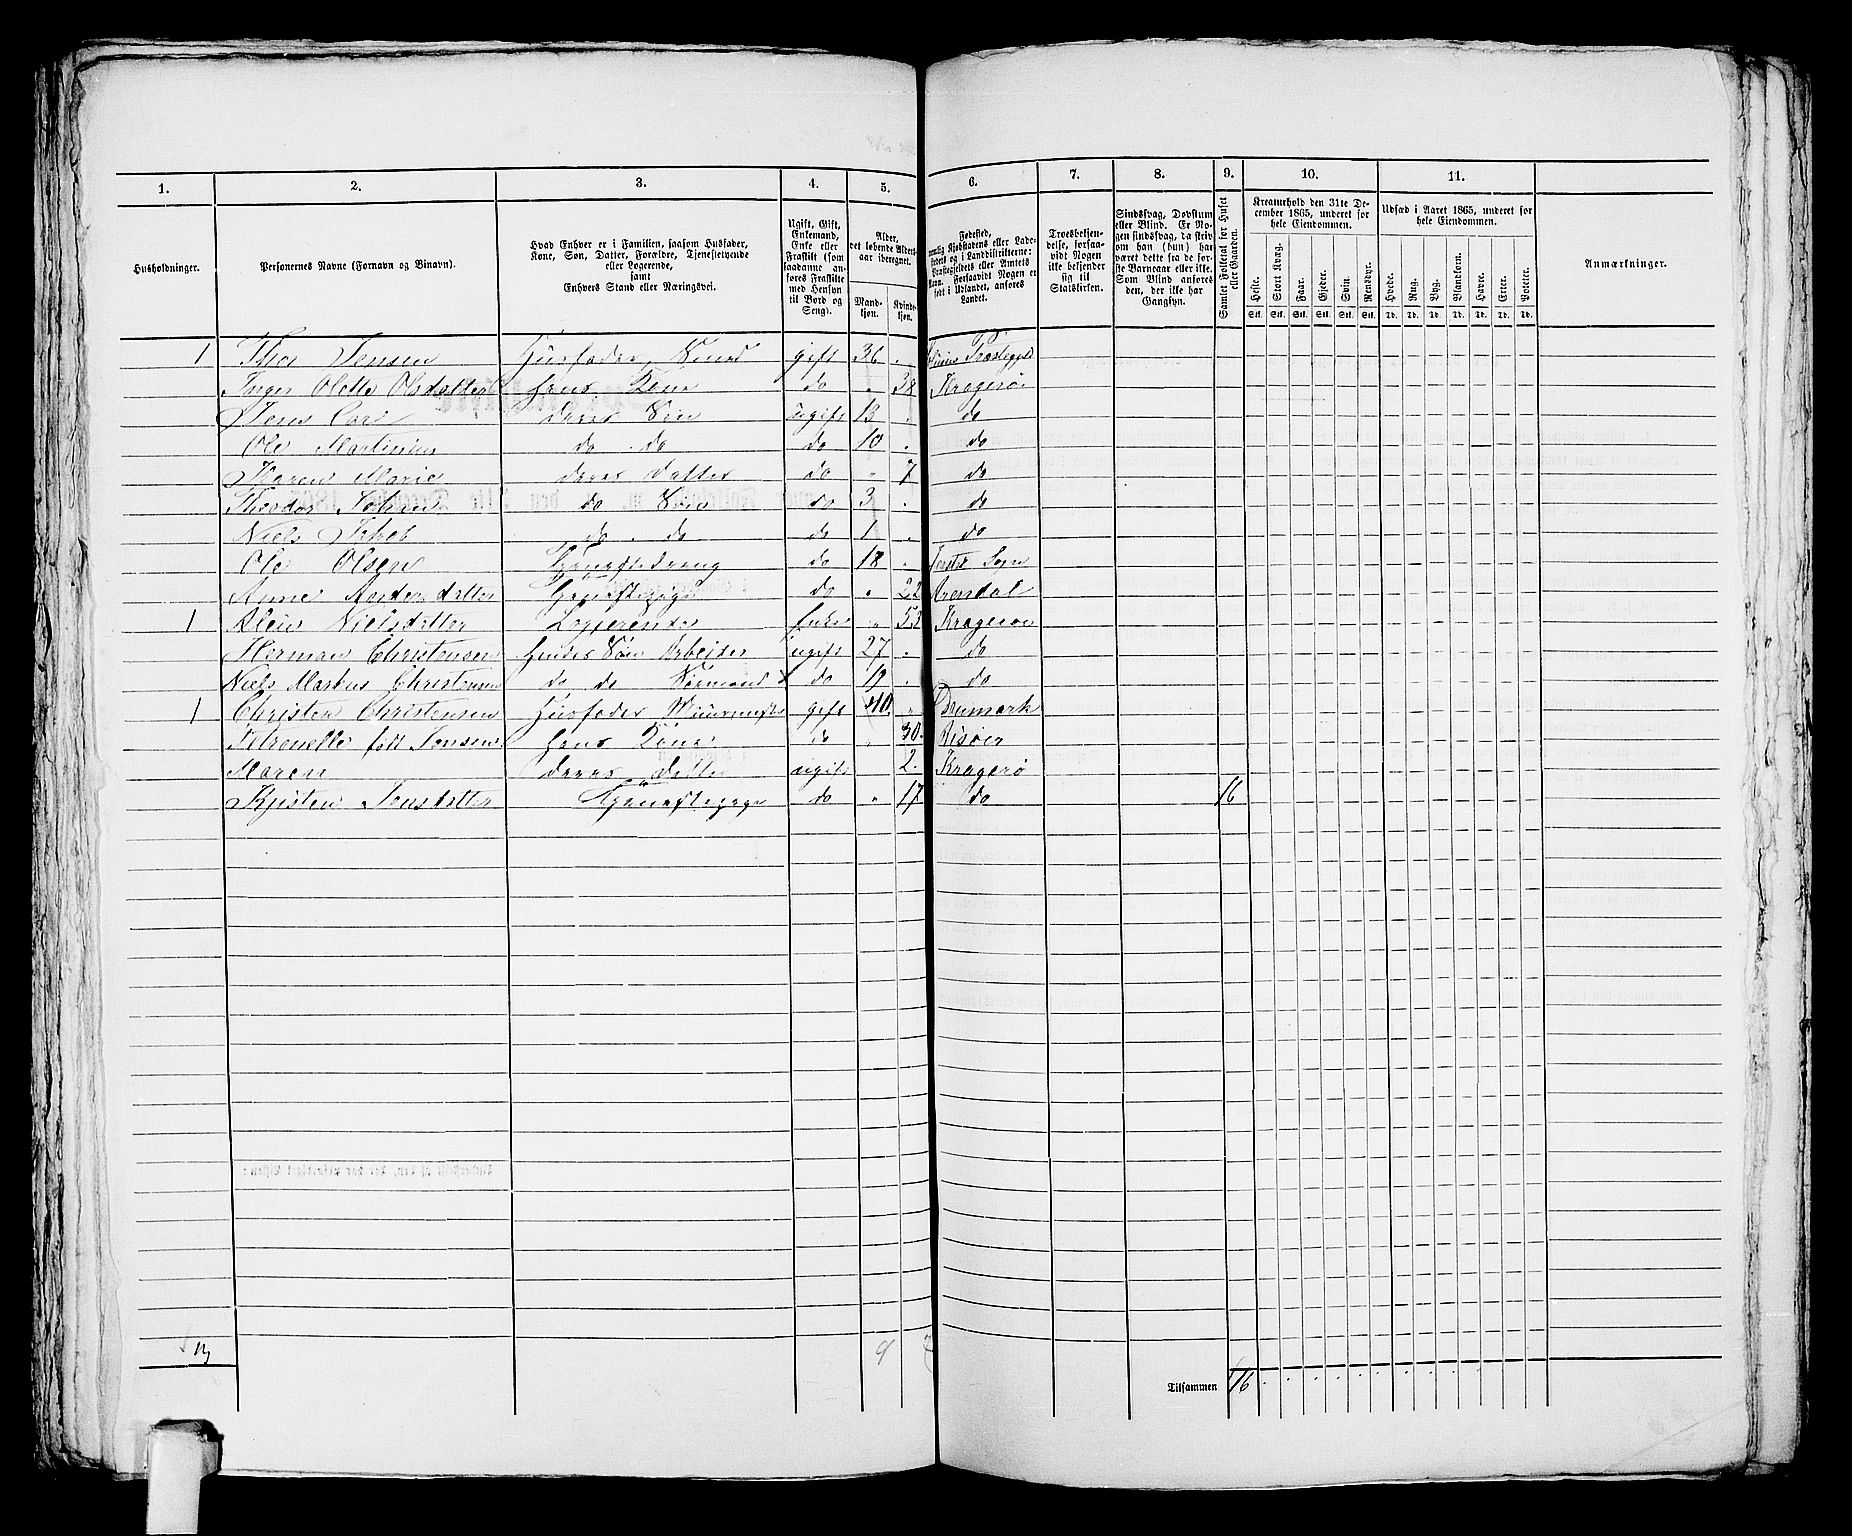 1. 2. 3. 4. 5. 6. 7. 8. 9. 10. 11.
Husholdninger.
Personernes Navne (Fornavn og Binavn).
Hvad Enhver er i Familien, saasom Husfader,
Kone, Søn, Datter, Forældre, Tjenestetyende
eller Logerende,
samt
Enhvers Stand eller Næringsvei.
Ugift, Gift,
Enkemand,
Enke eller
Fraskilt (som
saadanne an-
føres Fraskilte
med Hensyn
til Bord og
Seng).
Alder,
det løbende Alders-
aar iberegnet.
Mand-
kjøn.
Kvinde-
kjøn.
Fødested,
nemlig Kjøbstadens eller Lade-
stedets og i Landdistrikterne:
Præstegjeldets eller Amtets
Navn. Forsaavidt Nogen er
født i Udlandet, anføres
Landet.
Troesbekjen-
delse, forsaa-
vidt Nogen
ikke bekjender
sig til
Statskirken.
Sindssvag, Døvstum
eller Blind. Er No-
gen sindssvag, da skriv
om han (hun) har
været dette fra de før-
ste Barneaar eller ikke.
Som Blind anføres
den, der ikke har
Gangsyn.
Samlet Folketal for Huset
eller Gaarden.
Kreaturhold den 31te De-
cember 1865, underet for
hele Eiendommen.
Heste. Stort Kvæg. Faar. Gjeder. Svin. Rensdyr.
Stk. Stk. Stk. Stk. Stk. Stk.
Udsæd i Aaret 1865, underet for
hele Eiendommen.
Hvede. Rug. Byg. Blandkorn. Havre. Erter. Poteter.
Td. Td. Td. Td. Td. Td. Td.
Anmærkninger.
1 Thor Jensen Husfader gift 36 „
Inger Olette Olsdatter hans Kone do „ 38 Kragerø
Jens Carl deres Søn ugift 13 „ do
Ole Martinius do do do 10 „ do
Karen Marie deres Datter do „ 7 do
Theodor Johan do Søn do 3 „ do
Niels Jakob do do do 1 „ do
Ole Olsen Tjenestedreng do 18 „ Sogn
Anne Andersdatter Tjenestepige do „ 22 Arendal
1 Nielsdatter Logerende Enke „ 53 Kragerøe
Herman Christensen hendes Søn Arbeider ugift 27 „ do
Niels Markus Christensen do do Sømand do 19 „ do
1 Christen Christensen Husfader gift 40 „ Danmark
Petronelle født Jensen hans Kone do „ 30 Risøer
Maren deres Datter ugift 2 Kragerø
Kjisten Jensdatter Tjenestepige do „ 17 do 16
9 7
Tilsammen 16